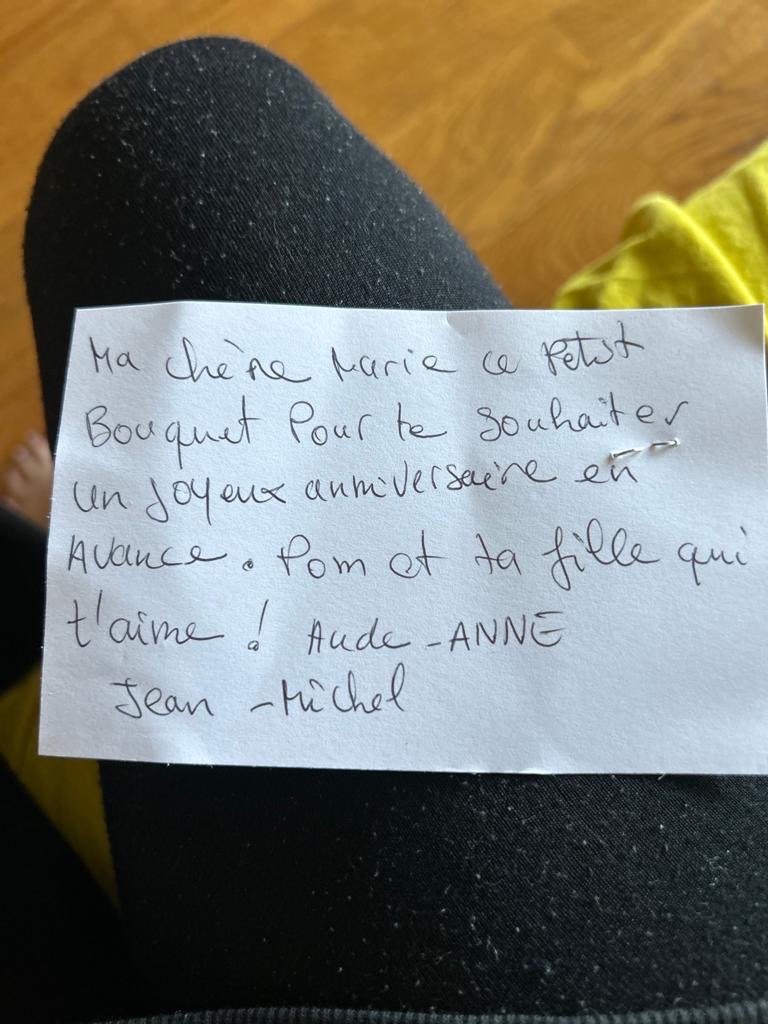 Ma chère Marie ce Petit
Bouquet Pour te souhaiter
un joyeux anniversaire en
Avance. Pom et ta fille qui
t'aime ! Aude-ANNE
Jean-Michel